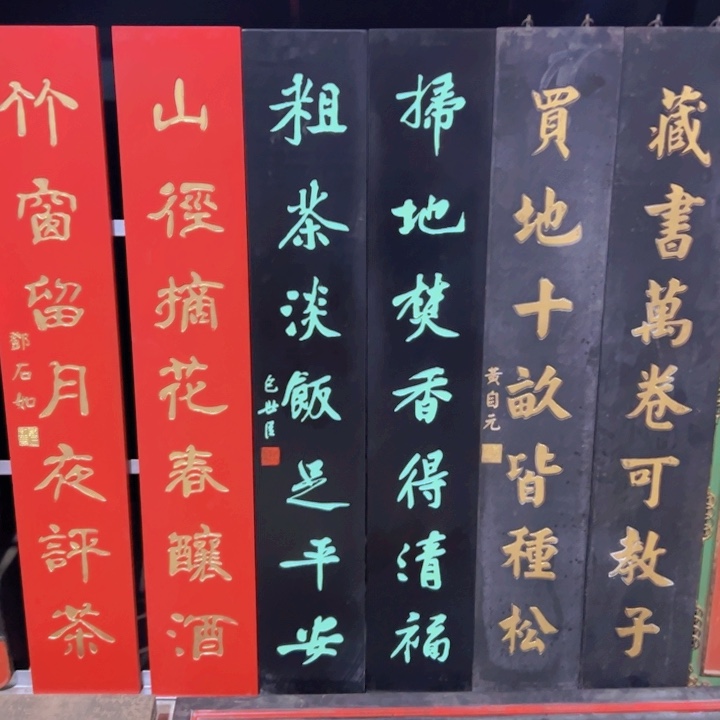 藏書萬卷可教子
買地十畝皆種松
黃自元
掃地焚香得清福
粗茶淡飯足平安
包世臣
山徑摘花春釀酒
竹窗留月夜評茶
鄧石如